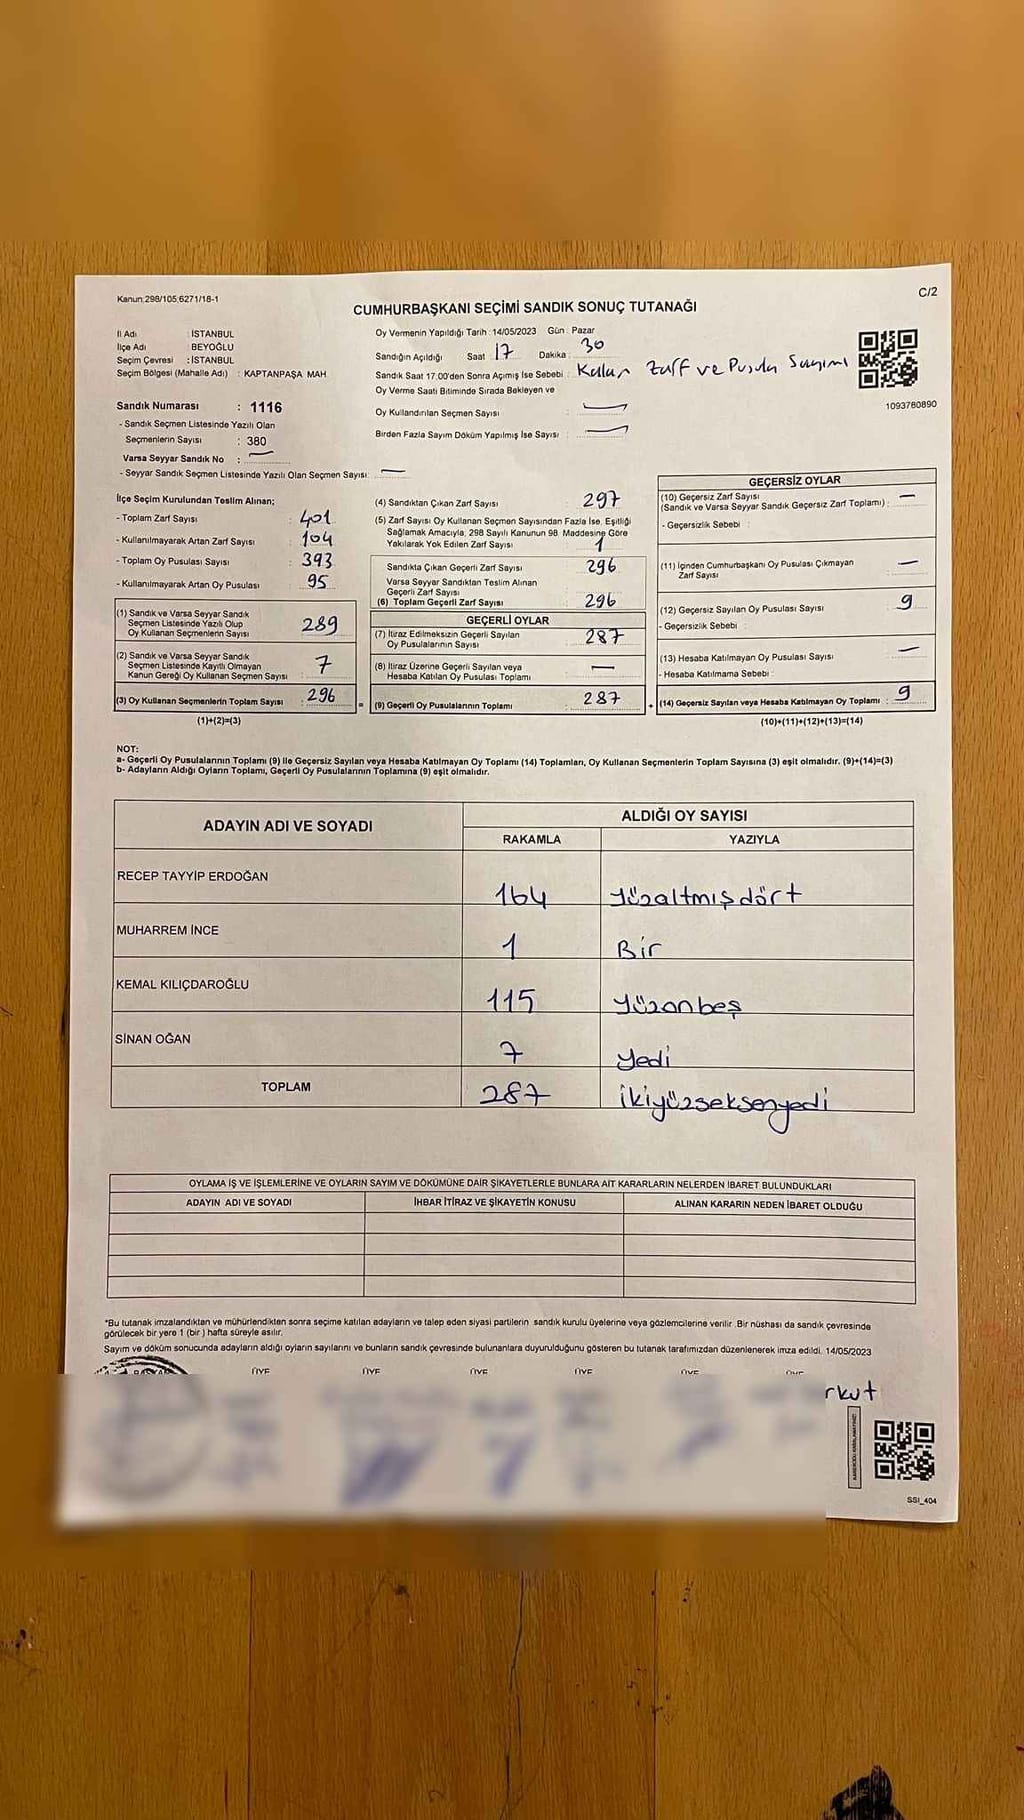 Kanun;298/105;6271/18-1
C/2
CUMHURBAŞKANI SEÇİMİ SANDIK SONUÇ TUTANAĞI
İl Adı : İSTANBUL
İlçe Adı : BEYOĞLU
Seçim Çevresi : İSTANBUL
Seçim Bölgesi (Mahalle Adı) : KAPTANPAŞA MAH
Sandık Numarası : 1116
- Sandık Seçmen Listesinde Yazılı Olan
Seçmenlerin Sayısı : 380
Varsa Seyyar Sandık No : —
- Seyyar Sandık Seçmen Listesinde Yazılı Olan Seçmen Sayısı: —
Oy Vermenin Yapıldığı Tarih : 14/05/2023 Gün : Pazar
Sandığın Açıldığı Saat 17 Dakika : 30
Sandık Saat 17.00'den Sonra Açımış İse Sebebi : Kalan zarf ve Pusula Sayımı
Oy Verme Saati Bitiminde Sırada Bekleyen ve
Oy Kullandırılan Seçmen Sayısı : —
Birden Fazla Sayım Döküm Yapılmış İse Sayısı : —
1093780890
İlçe Seçim Kurulundan Teslim Alınan;
- Toplam Zarf Sayısı : 401
- Kullanılmayarak Artan Zarf Sayısı : 104
- Toplam Oy Pusulası Sayısı : 393
- Kullanılmayarak Artan Oy Pusulası : 95
(1) Sandık ve Varsa Seyyar Sandık
Seçmen Listesinde Yazılı Olup
Oy Kullanan Seçmenlerin Sayısı : 289
(2) Sandık ve Varsa Seyyar Sandık
Seçmen Listesinde Kayıtlı Olmayan
Kanun Gereği Oy Kullanan Seçmen Sayısı : 7
(3) Oy Kullanan Seçmenlerin Toplam Sayısı : 296
(1)+(2)=(3)
(4) Sandıktan Çıkan Zarf Sayısı : 297
(5) Zarf Sayısı Oy Kullanan Seçmen Sayısından Fazla İse, Eşitliği
Sağlamak Amacıyla, 298 Sayılı Kanunun 98. Maddesine Göre
Yakılarak Yok Edilen Zarf Sayısı : 1
Sandıkta Çıkan Geçerli Zarf Sayısı : 296
Varsa Seyyar Sandıktan Teslim Alınan
Geçerli Zarf Sayısı
(6) Toplam Geçerli Zarf Sayısı : 296
GEÇERLİ OYLAR
(7) İtiraz Edilmeksizin Geçerli Sayılan
Oy Pusulalarının Sayısı : 287
(8) İtiraz Üzerine Geçerli Sayılan veya
Hesaba Katılan Oy Pusulası Toplamı : —
= (9) Geçerli Oy Pusulalarının Toplamı : 287
GEÇERSİZ OYLAR
(10) Geçersiz Zarf Sayısı
(Sandık ve Varsa Seyyar Sandık Geçersiz Zarf Toplamı) : —
- Geçersizlik Sebebi :
(11) İçinden Cumhurbaşkanı Oy Pusulası Çıkmayan
Zarf Sayısı : —
(12) Geçersiz Sayılan Oy Pusulası Sayısı : 9
- Geçersizlik Sebebi :
(13) Hesaba Katılmayan Oy Pusulası Sayısı : —
- Hesaba Katılmama Sebebi :
+ (14) Geçersiz Sayılan veya Hesaba Katılmayan Oy Toplamı : 9
(10)+(11)+(12)+(13)=(14)
NOT:
a- Geçerli Oy Pusulalarının Toplamı (9) ile Geçersiz Sayılan veya Hesaba Katılmayan Oy Toplamı (14) Toplamları, Oy Kullanan Seçmenlerin Toplam Sayısına (3) eşit olmalıdır. (9)+(14)=(3)
b- Adayların Aldığı Oyların Toplamı, Geçerli Oy Pusulalarının Toplamına (9) eşit olmalıdır.
ADAYIN ADI VE SOYADI
ALDIĞI OY SAYISI
RAKAMLA YAZIYLA
RECEP TAYYİP ERDOĞAN 164 Yüzaltmışdört
MUHARREM İNCE 1 Bir
KEMAL KILIÇDAROĞLU 115 Yüzonbeş
SİNAN OĞAN 7 Yedi
TOPLAM 287 ikiyüzseksenyedi
OYLAMA İŞ VE İŞLEMLERİNE VE OYLARIN SAYIM VE DÖKÜMÜNE DAİR ŞİKAYETLERLE BUNLARA AİT KARARLARIN NELERDEN İBARET BULUNDUKLARI
ADAYIN ADI VE SOYADI İHBAR İTİRAZ VE ŞİKAYETİN KONUSU ALINAN KARARIN NEDEN İBARET OLDUĞU
*Bu tutanak imzalandıktan ve mühürlendikten sonra seçime katılan adayların ve talep eden siyasi partilerin sandık kurulu üyelerine veya gözlemcilerine verilir .Bir nüshası da sandık çevresinde
görülecek bir yere 1 (bir ) hafta süreyle asılır.
Sayım ve döküm sonucunda adayların aldığı oyların sayılarını ve bunların sandık çevresinde bulunanlara duyurulduğunu gösteren bu tutanak tarafımızdan düzenlenerek imza edildi. 14/05/2023
BAŞKAN ÜYE ÜYE ÜYE ÜYE ÜYE ÜYE
rkut
SSI_404